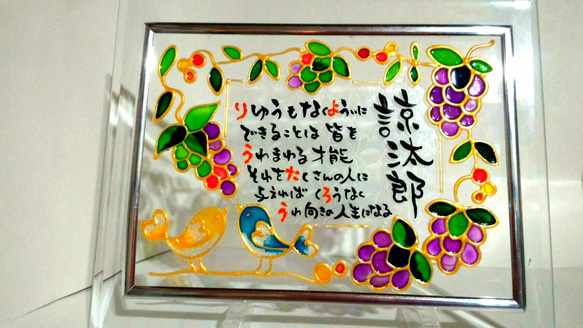 諒汰郎
りゆうもなくよういに
できることは皆を
うわまわる才能
それをたくさんの人に
与えればくろうなく
うわ向きの人生になる